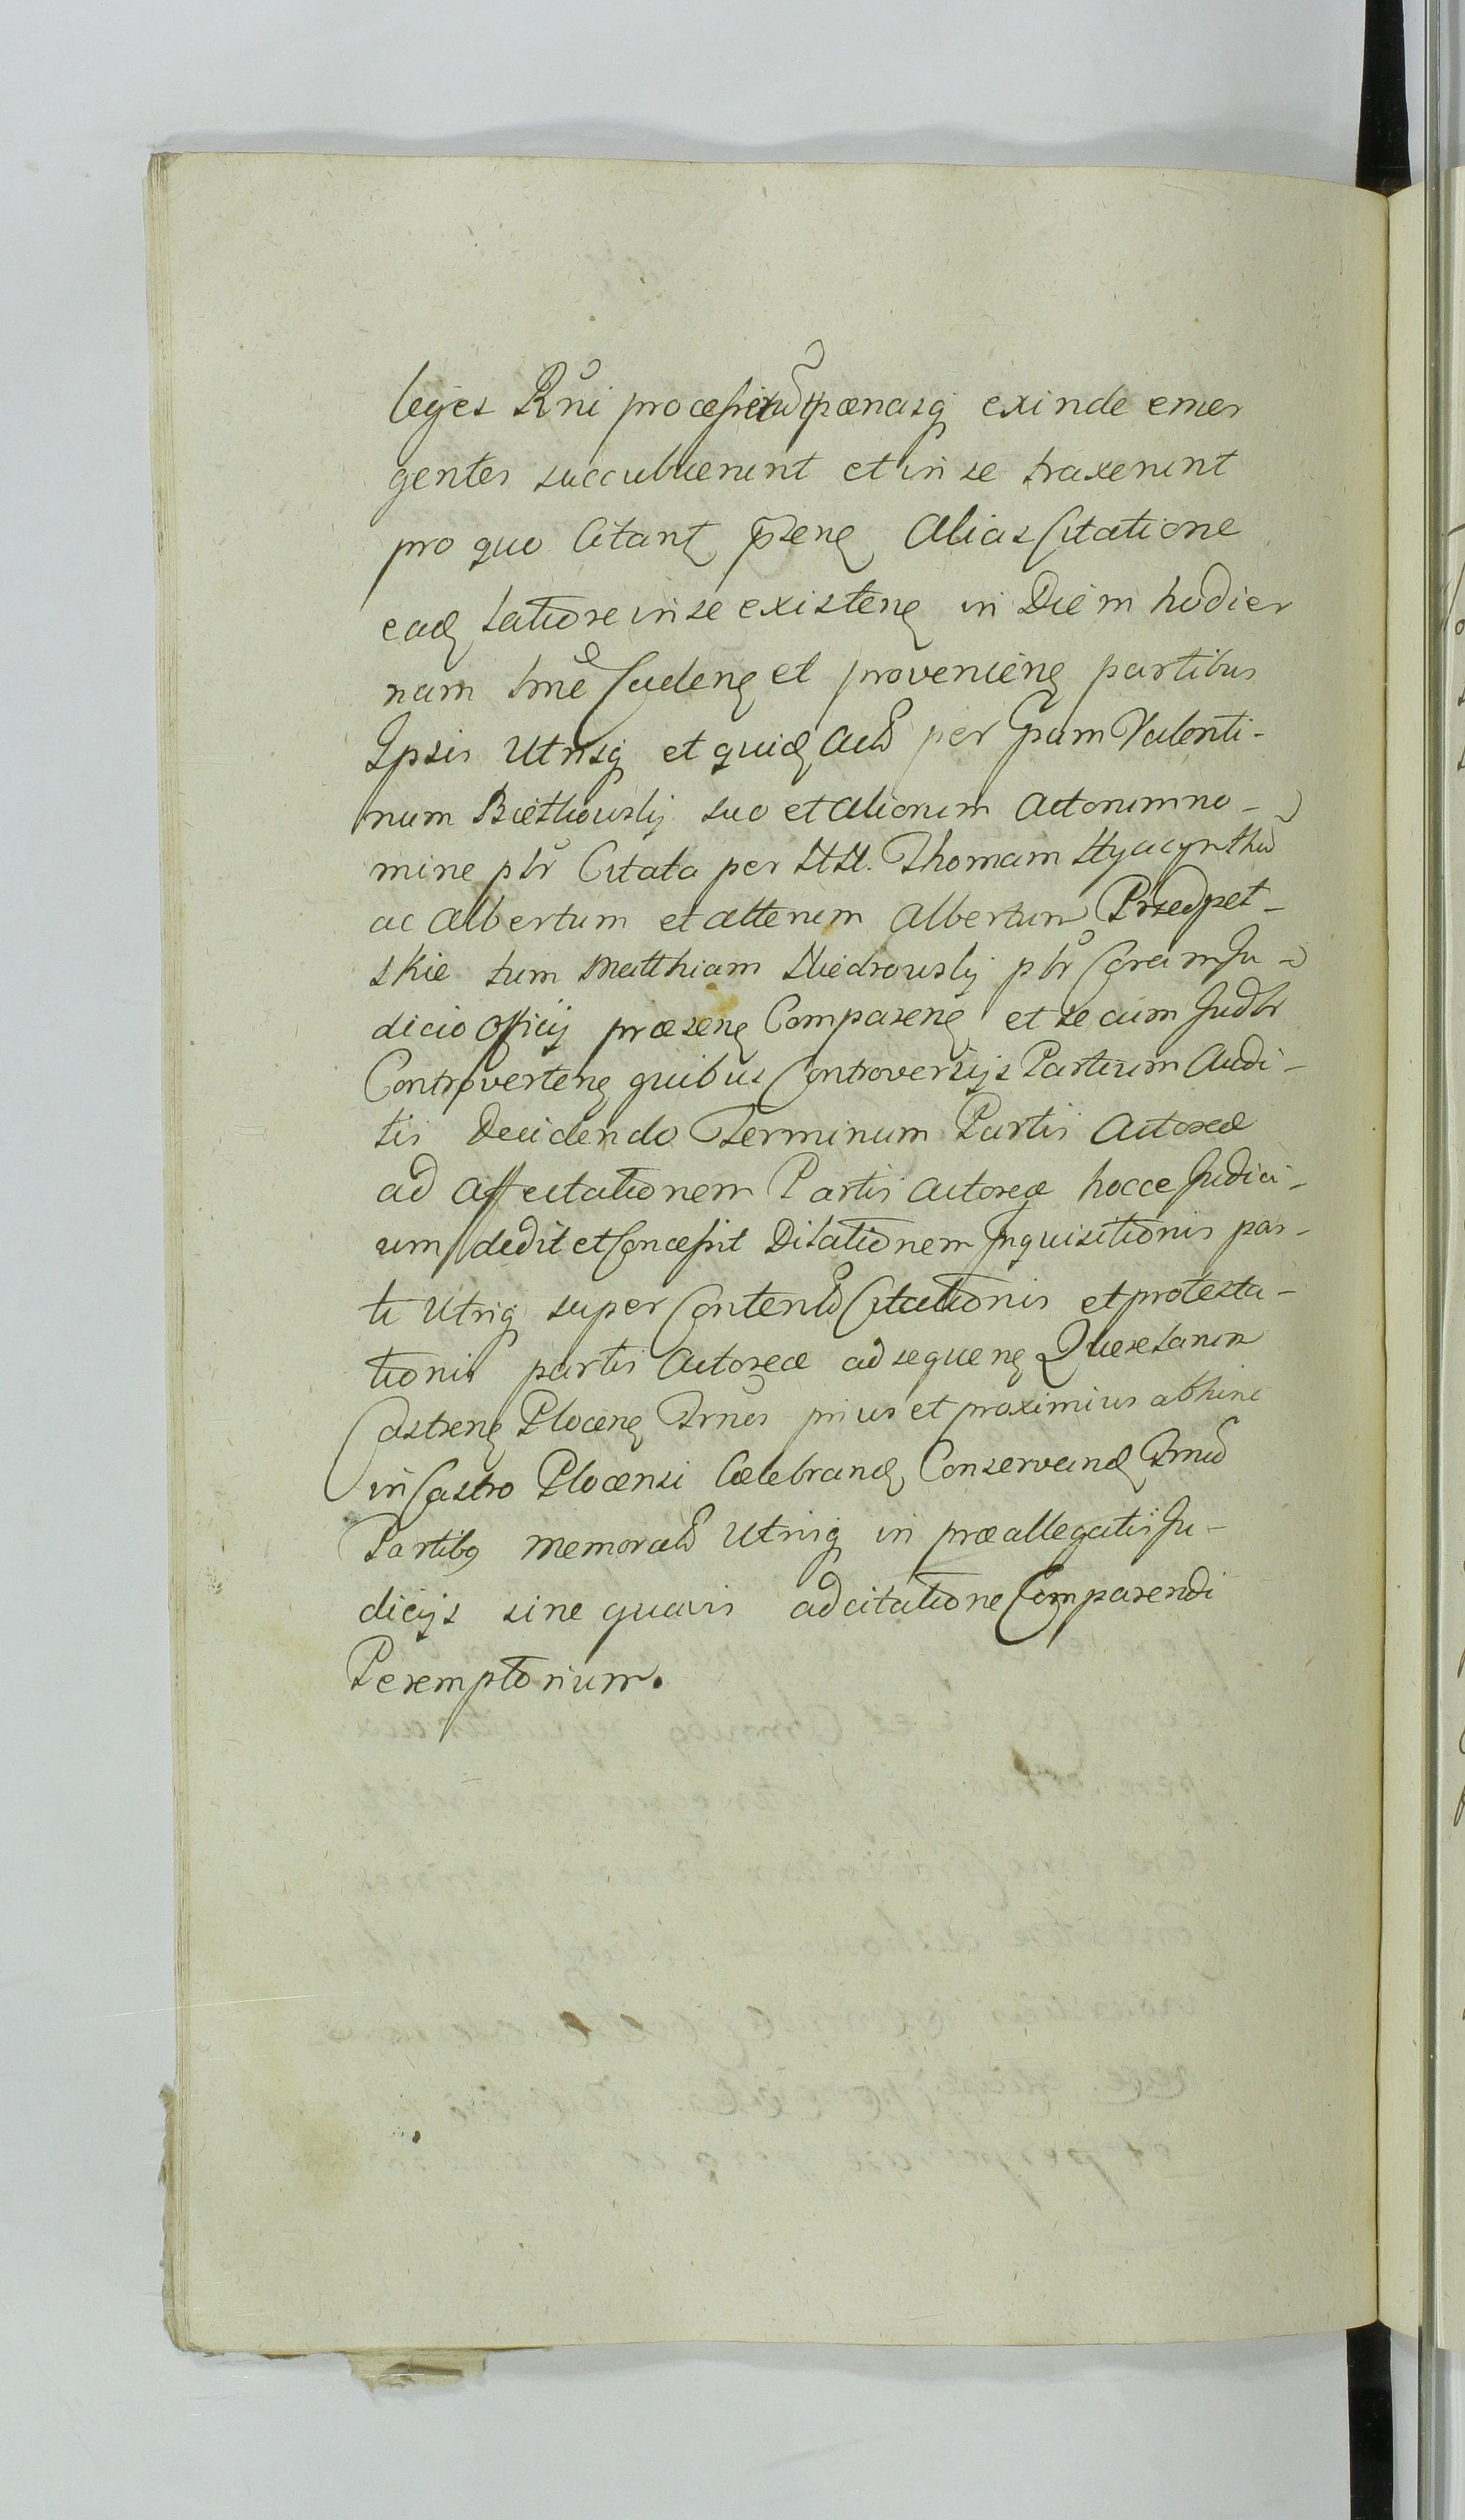 leges Rni processerũt pænasq exinde emer
gentes succubuerunt et in se traxerunt
pro quo Citant psenq Alias Citatione
eadq latiore in se existenq in Diem hodier
nam tme Cadenq et provenienq partibus
Ipsis Utrisq et quidq per Gsum Valenti-
num suo et aliorum Actorum no-
mine ptr Citata per NN. Thomam Hyacynthũ
ac Albertum et alterum Albertum Przedpet-
skie tum Matthiam ptr Coram Ju-
dicio Officij præsenq Comparenq et se cum Judtr
Controvertenq quibus Controversijs Partium Audi-
tis Decidendo Terminum Partis Actoreæ
ad affectationem Partis Actoreæ hocce Judici-
um dedit et Concessit Dilationem Inquisitionis par-
ti Utriq super Content Citationis et protesta-
tionis partis Actoreæ ad sequenq Querelarum
Castrenq Plocenq Trnos prius et proximius abhinc
in Castro Plocensi Celebrandq Conservandq Trnũ
Partibq memorat Utrisq in præallegatis Ju-
dicijs sine quavis adcitatione Comparendi
Peremptorium.